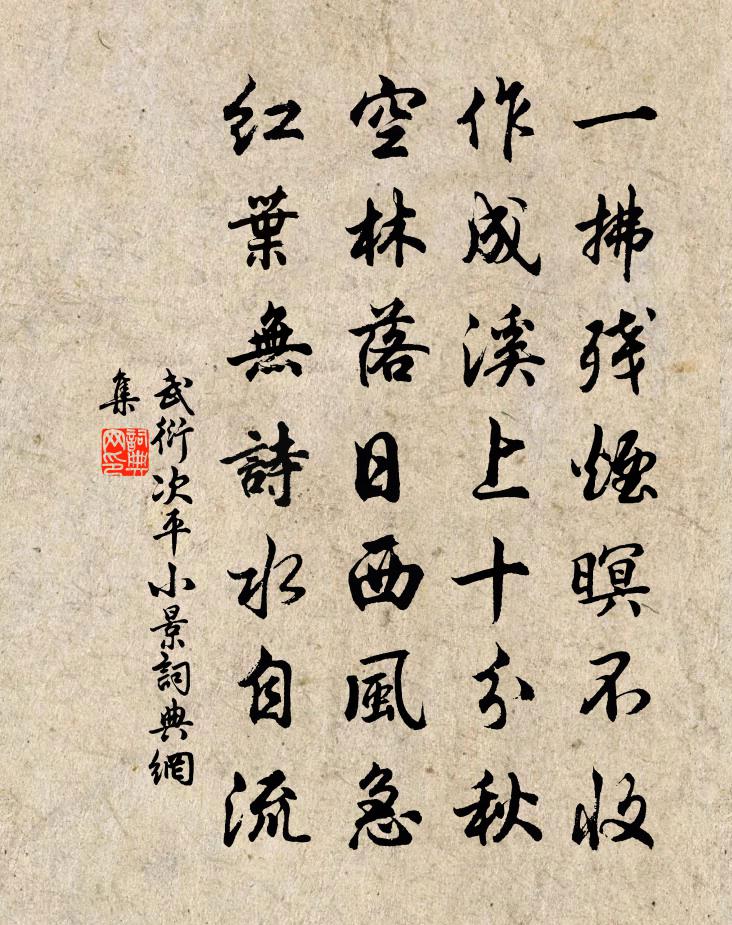 一拂残煙暝不收
作成溪上十分秋
空林落日西風急
紅葉無詩水自流
武衍次平小景詞典網
集
詞典
网印